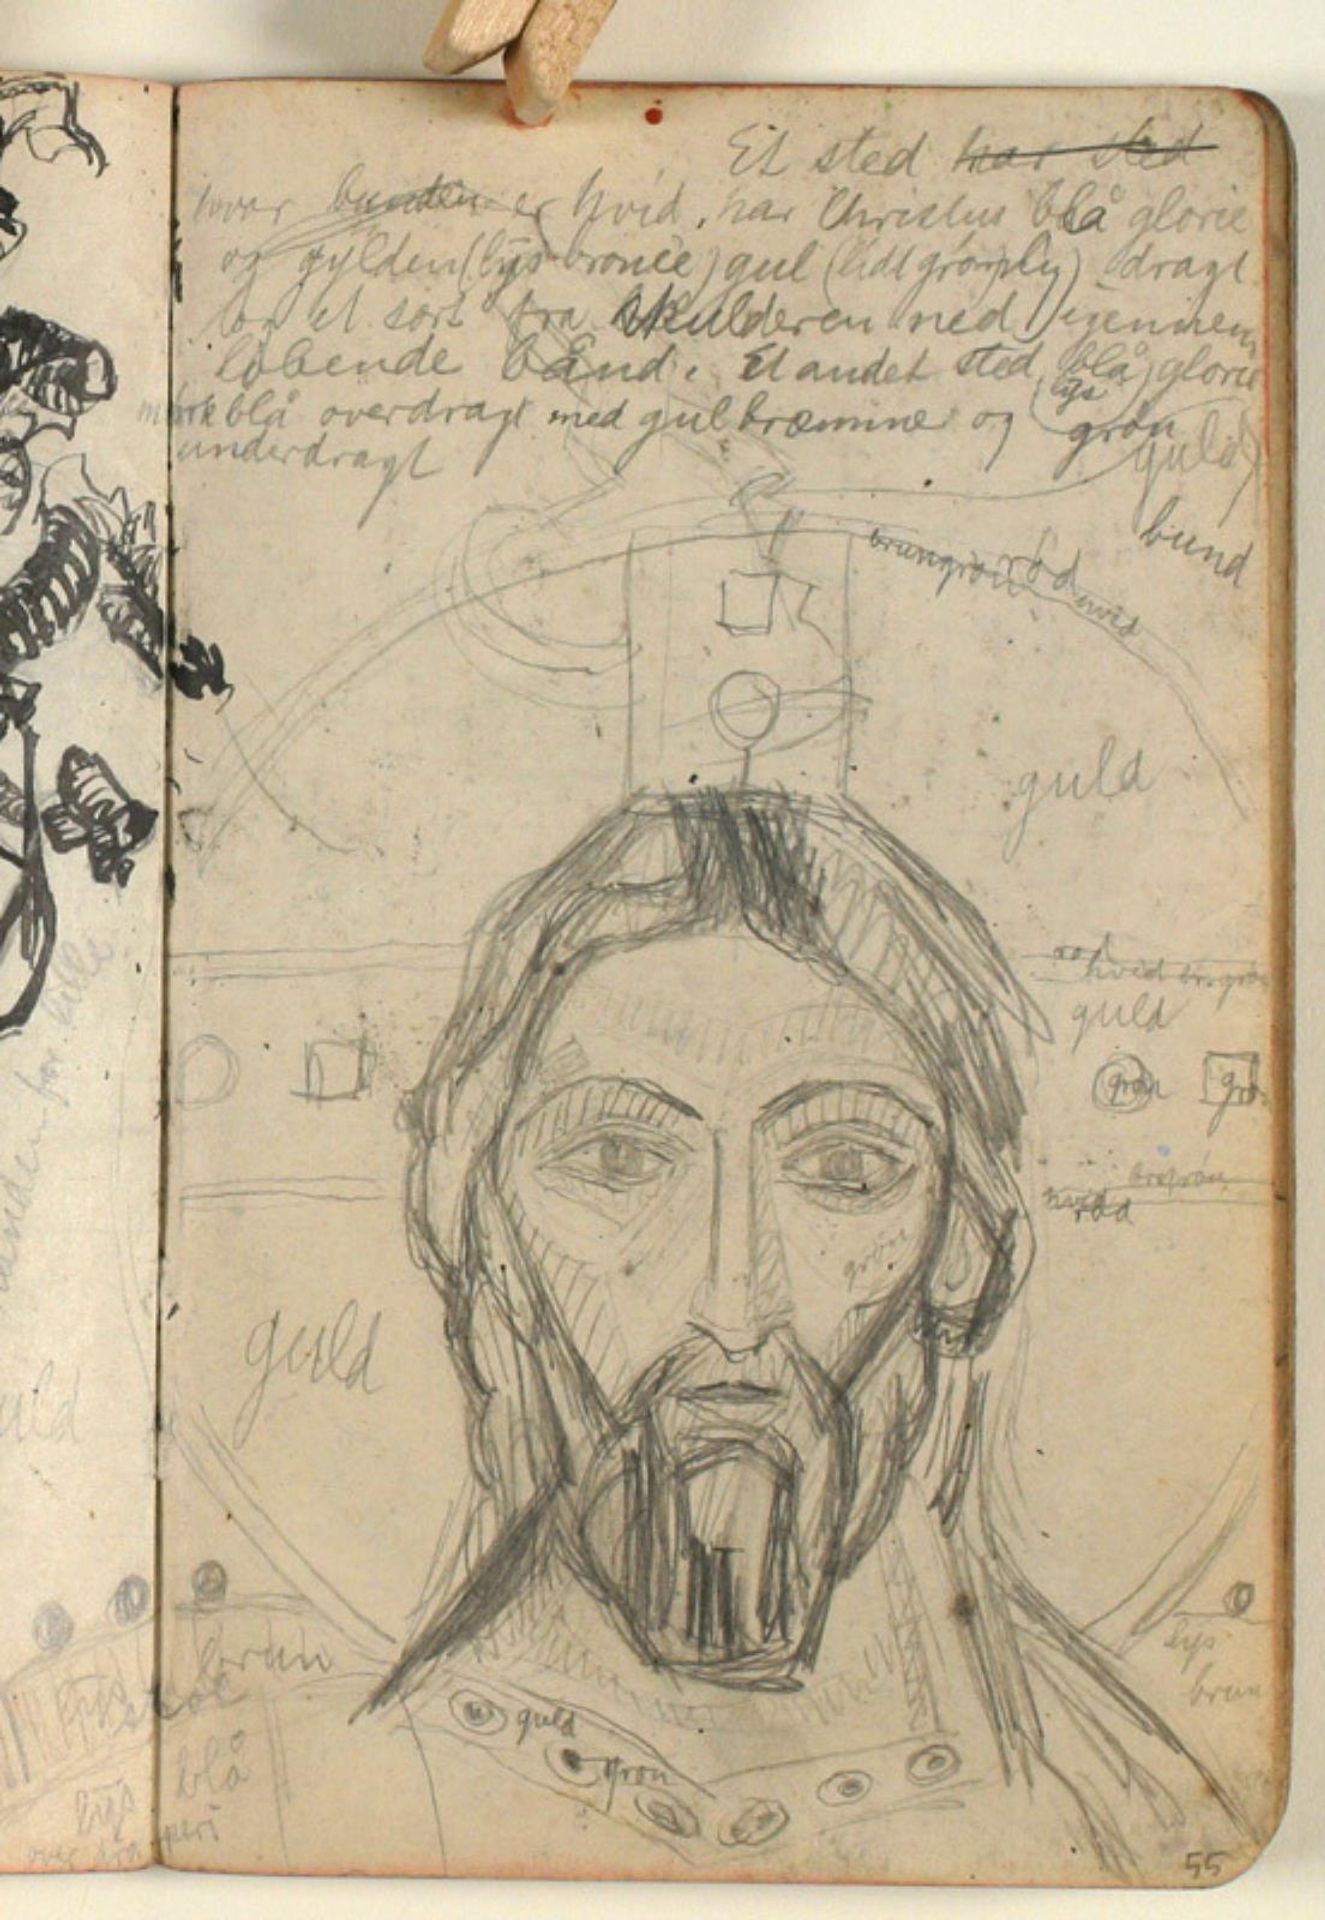 Et sted har sted
hvor bunden er hvid, har Christus blå glorie
og gylden (lys bronce) gul (lidt grønlig) dragt
og et sort fra skulderen ned igennem
løbende bånd. Et andet sted blå glorie
mørkblå overdragt med gul bræmme og (lys grøn
underdragt
guld)
bund
brungrøn rød hvid
guld
rød
hvid
guld
grøn
brgrøn
hvid
rød
grøn
guld
brun
blå
lys
brun
guld
grøn
lys
55